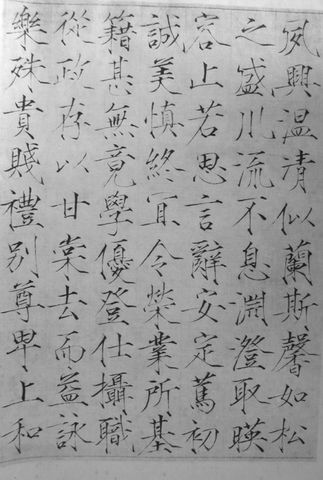 夙興温凊似蘭斯馨如松
之盛川流不息淵澄取暎
容止若思言辭安定篤初
誠美慎終宜令榮業所基
籍甚無竟學優登仕攝職
從政存以甘棠去而益詠
樂殊貴賤禮别尊卑上和